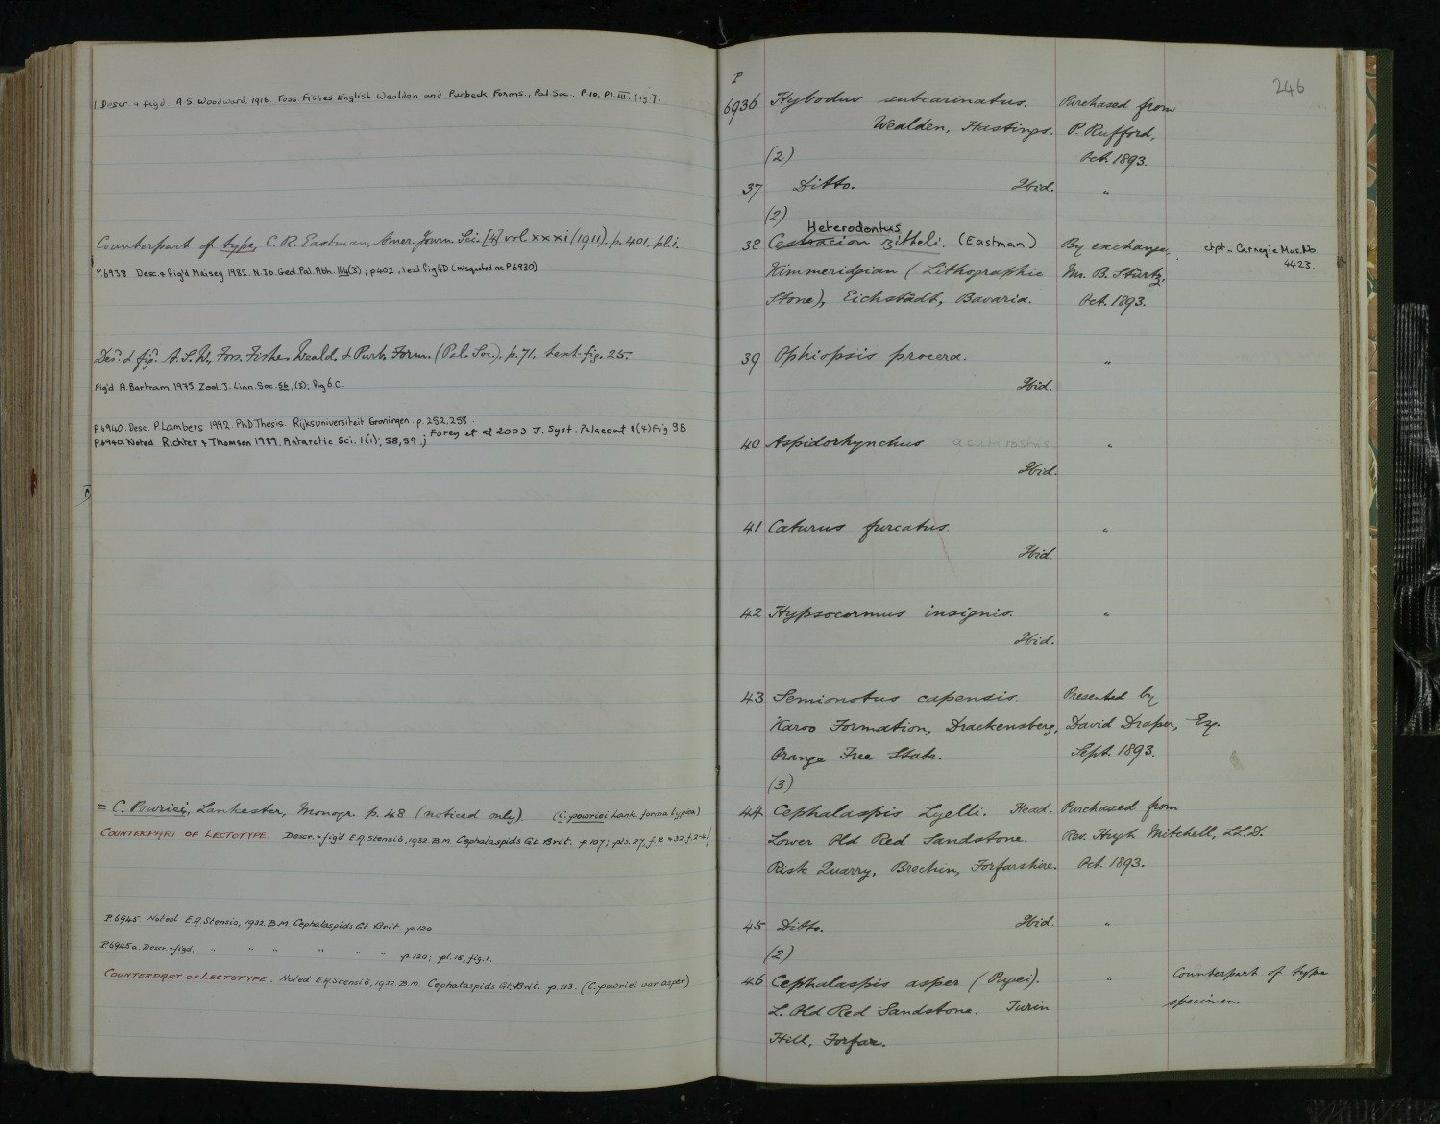 Descr. & fig'd A.S. Woodward 1916. Foss. Fishes English Wealden and Purbeck Forms., Pal. Soc., p. 10, Pl. III. fig. 7.
Counterpart of type, C. R. Eastman, Amer. Journ. Sci. [4] vol xxxi (1911). p. 401. pl. i.
P.6938 Desc. & fig'd Maisey 1985. N. Jb. Geol. Pal. Abh. ; p 402, text fig 6D (misquoted as P6930)
Des. & fig. A.S.W., Foss. Fishes Weald. & Purb. Form. (Pal. Soc.). p. 71. text-fig. 25.
Fig'd A. Bartram 1975 Zool. J. Linn. Soc. 56, (3); fig 6 C.
P.6940. Desc. P. Lambers 1992. PhD Thesis. Rijksuniversiteit Groningen. p. 252, 258.
P.6940 Noted Richter & Thomson 1989. Antarctic Sci. 1(1); 58, 59.; Forey et al 2003 J. Syst. Palaeont 1(4) Fig 9B
= C. Powriei, Lankester, Monogr. p. 48 (noticed only). (C. powriei Lank. forma typica)
COUNTERPART OF LECTOTYPE. Descr. & fig'd E.A. Stensiö, 1932. B.M. Cephalaspids Gt. Brit. p 107; pls. 27, f. 2 & 32 f. 2-4
P.6945. Noted E.A. Stensiö, 1932. B.M. Cephalaspids Gt Brit. p. 120
P.6945a. Descr. & figd. " " " " " " p. 120; pl. 15, fig. 1.
COUNTERPART OF LECTOTYPE. Noted E.A. Stensiö, 1932. B.M. Cephalaspids Gt. Brit. p. 113. (C. powriei var asper)
246
P
6936 Hybodus subcarinatus. Purchased from
Wealden, Hastings. P. Rufford,
(2) Oct. 1893.
37 Ditto. Ibid. "
(2)
Heterodontus
38 Cestracion zitteli. (Eastman) By exchange, ctpt = Carnegie Mus. No
Kimmeridgian (Lithographic Mr. B. Stürtz, 4423.
Stone), Eichstädt, Bavaria. Oct. 1893.
39 Ophiopsis procera. "
Ibid.
40 Aspidorhynchus acutirostris "
Ibid.
41 Caturus furcatus. "
Ibid.
42 Hypsocormus insignis. "
Ibid.
43 Semionotus capensis. Presented by
Karoo Formation, Drackensberg, David Draper, Esq.
Orange Free State. Sept. 1893.
(3)
44 Cephalaspis Lyelli. Head. Purchased from
Lower Old Red Sandstone. Rev. Hugh Mitchell, LL.D.
Risk Quarry, Brechin, Forfarshire. Oct. 1893.
45 Ditto. Ibid. "
(2)
46 Cephalaspis asper (Pagei). " Counterpart of type
L. Old Red Sandstone. Turin specimen.
Hill, Forfar.